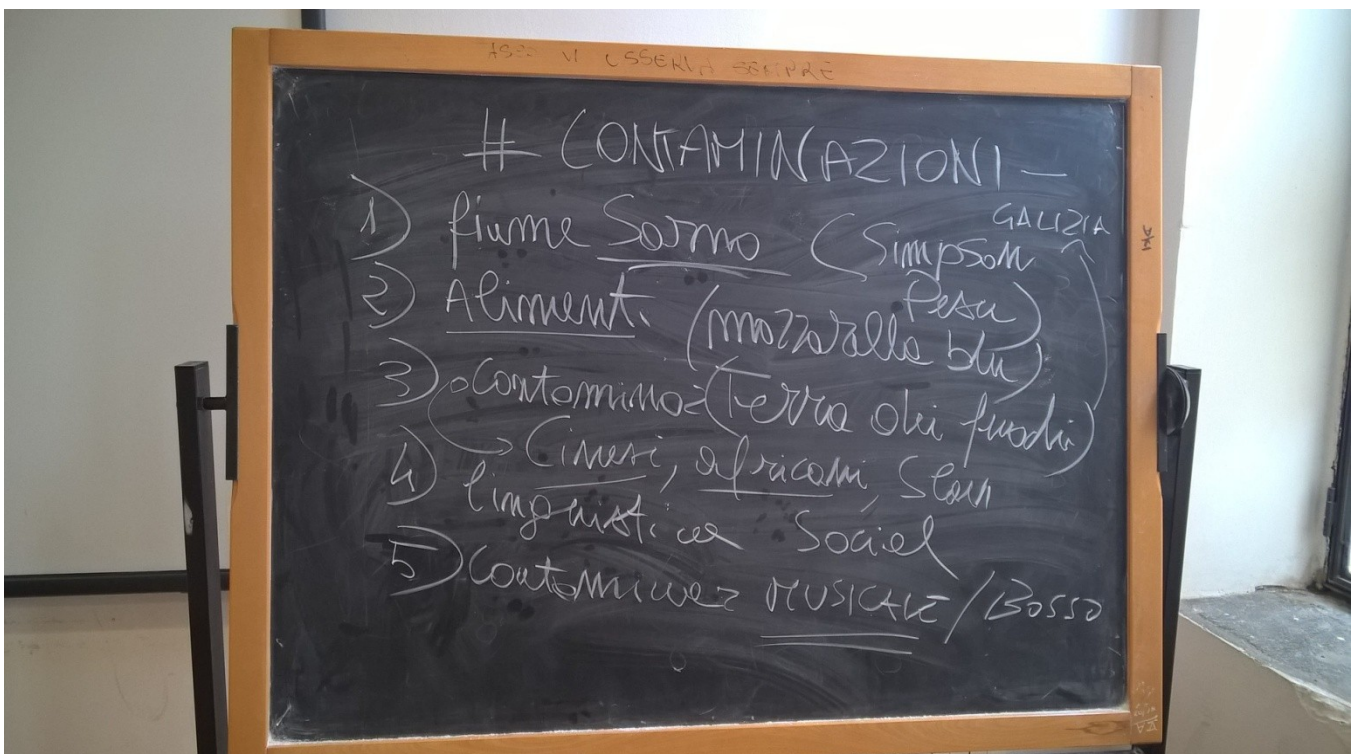 SEMPRE
# CONTAMINAZIONI -
GALIZIA
1) fiume Sarno (Simpson
Pesci)
2) Alimenti (mozzarella blu)
3) Contaminaz (terra dei fuochi)
→ Cinesi, africani, Slavi
4) linguistica Social
5) Contaminaz MUSICALE / BOSSO